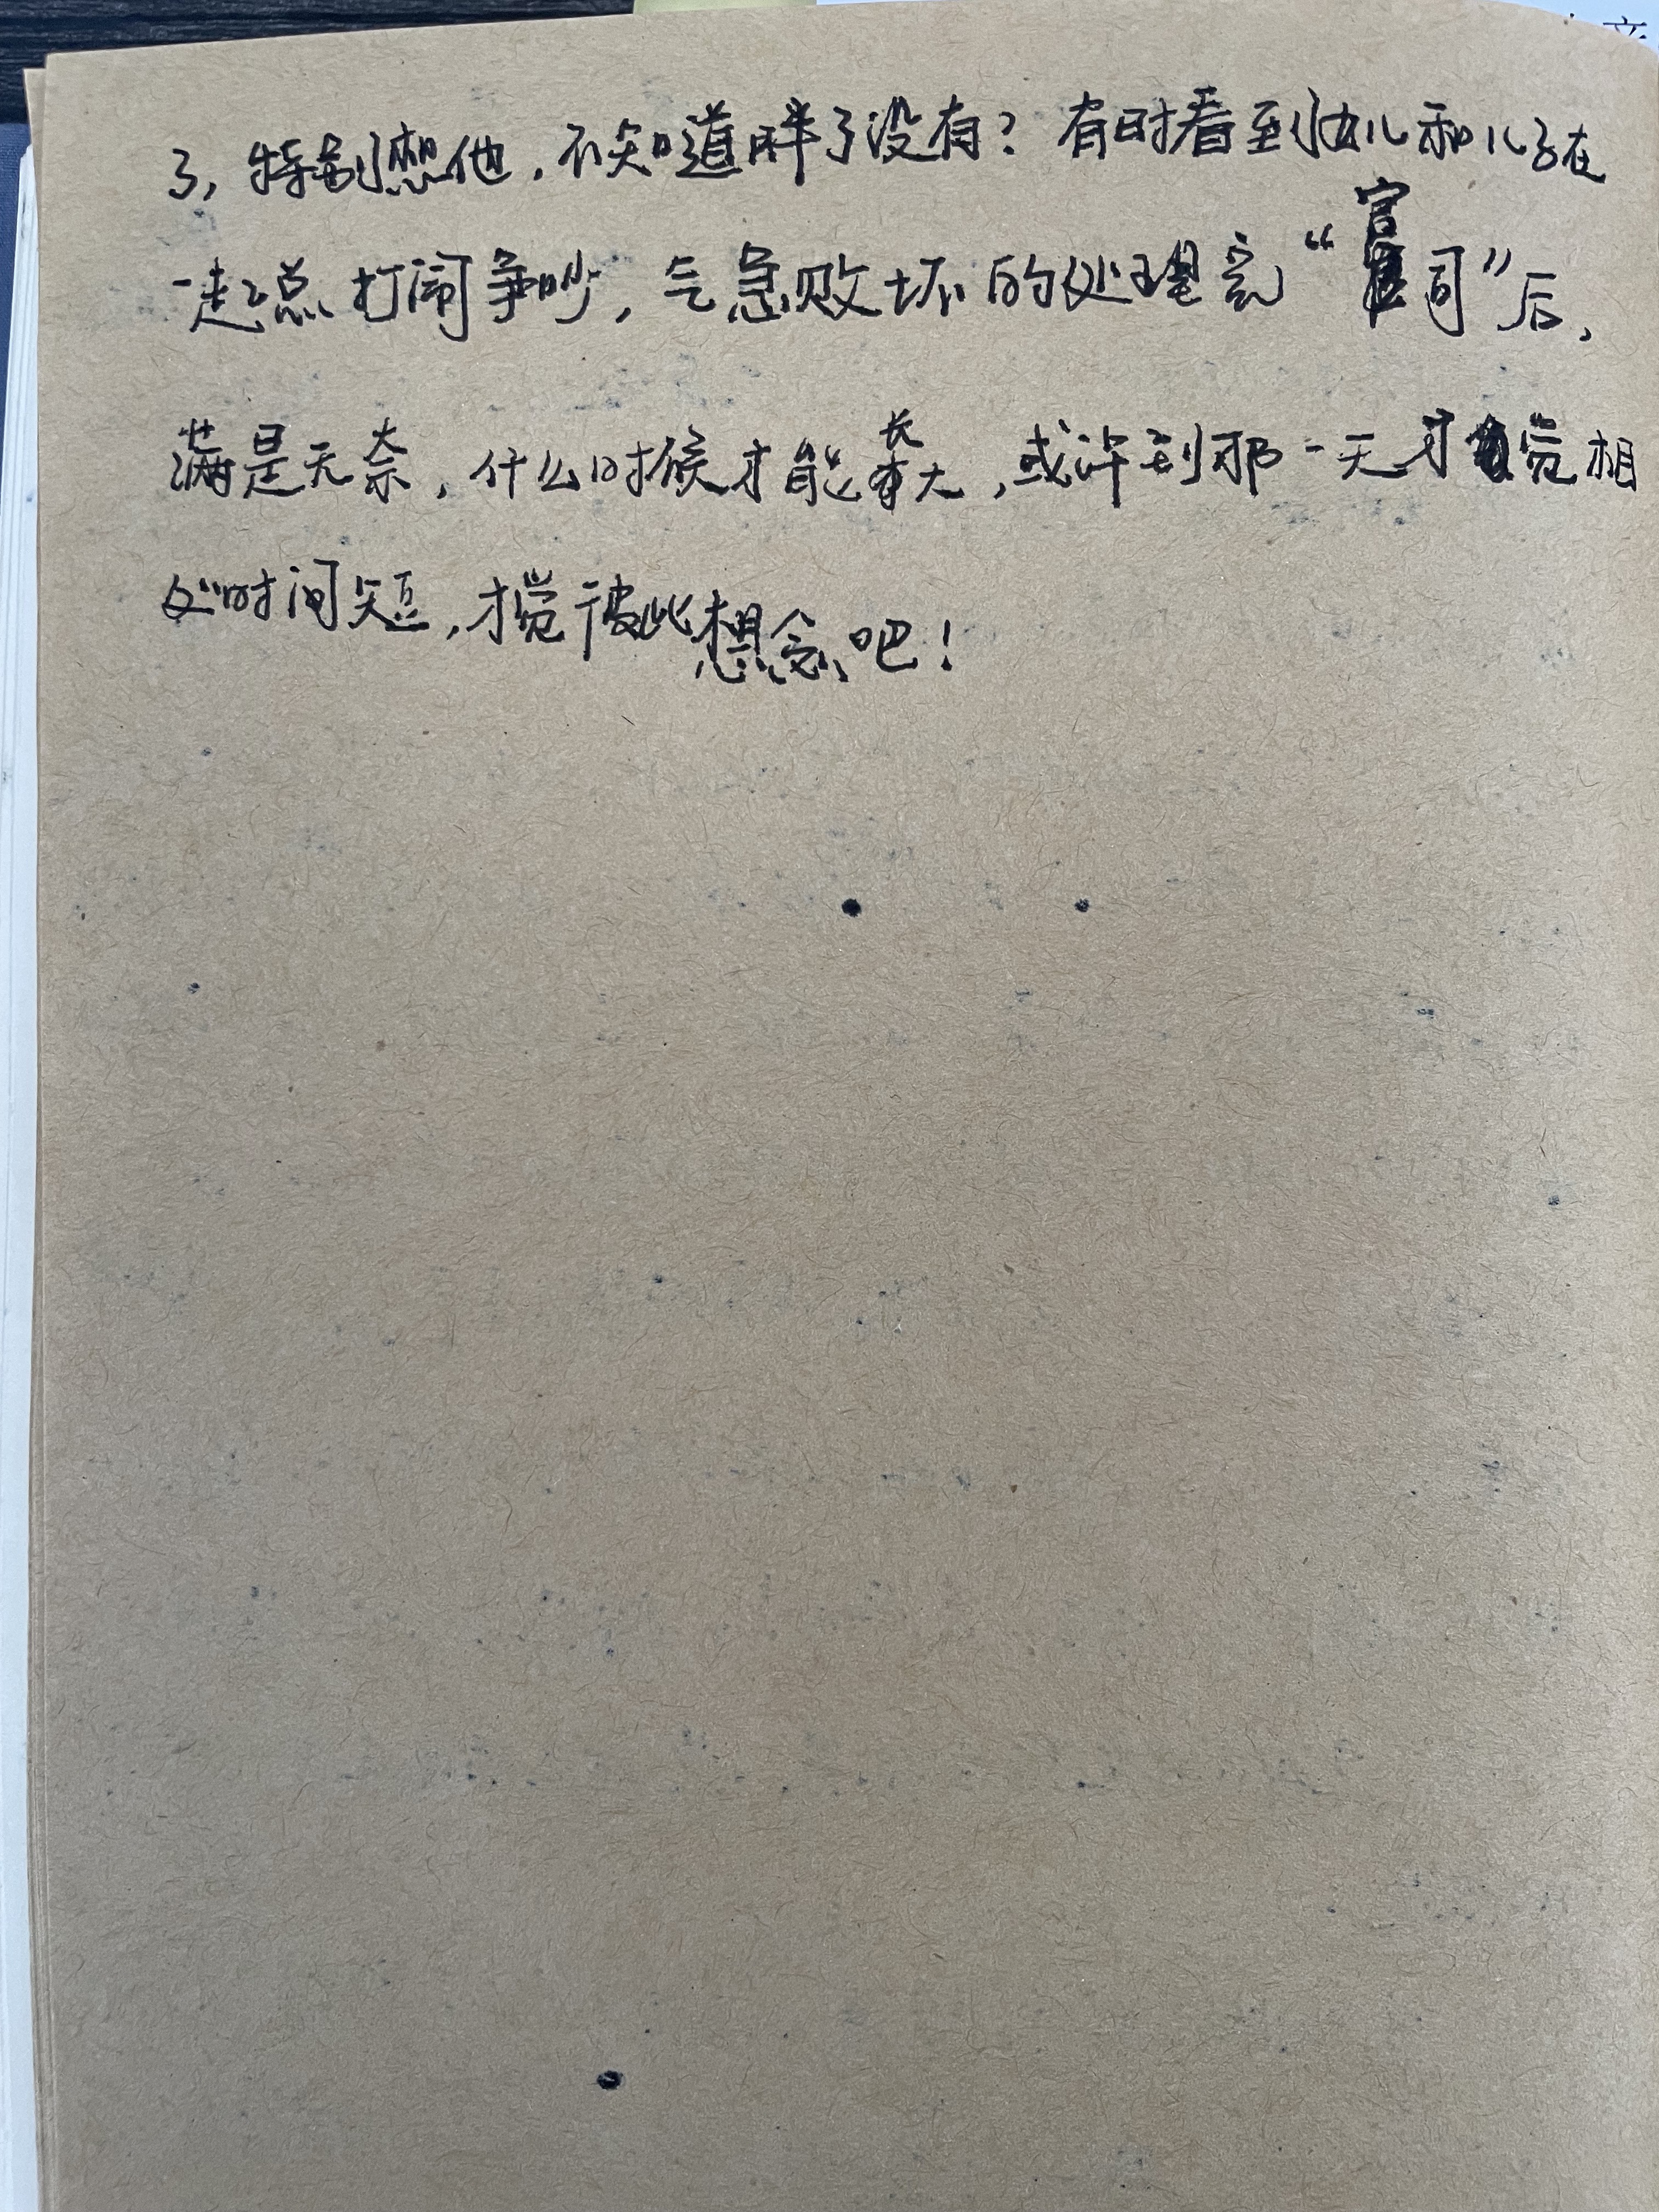 了，特别想他，不知道胖了没有？有时看到女儿和儿子在
一起总打闹争吵，气急败坏的处理完“官司”后，
满是无奈，什么时候才能长大，或许到那一天才觉相
处时间短，才觉彼此想念吧！